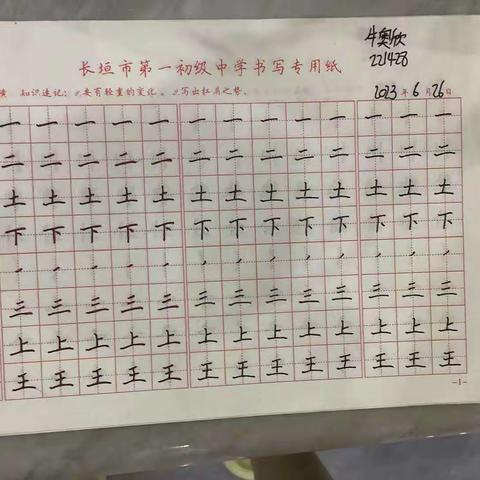 牛奥欣
221428
长垣市第一初级中学书写专用纸
知识速记：1.要有轻重的变化。2.写出杠肩之势。 2023年6月26日
一一一一一一一一一一一一一
二二二二二二二二二二二二二
土土土土土土土土土土土土土
下下下下下下下下下下下下下
三三三三三三三三三三三三三
上上上上上上上上上上上上上
王王王王王王王王王王王王王
-1-